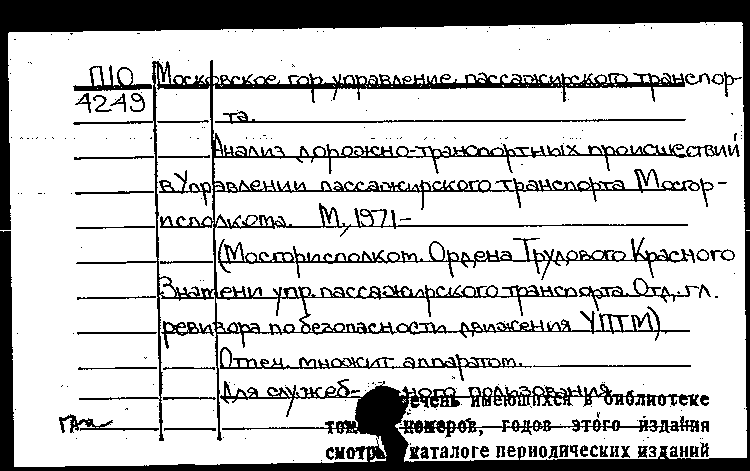 П10 Московское гор. управление пассажирского транспор-
4249 та.
Анализ дорожно-транспортных происшествий
в Управлении пассажирского транспорта Мосгор-
исполкома. М., 1971-
(Мосгорисполком. Ордена Трудового Красного
Знамени упр. пассажирского транспорта. Отд. гл.
ревизора по безопасности движения УПТМ)
Отпеч. множит. аппаратом.
Для служеб- ного пользования
речень имеющихся в библиотеке
томов номеров, годов этого издания
смотри каталоге периодических изданий